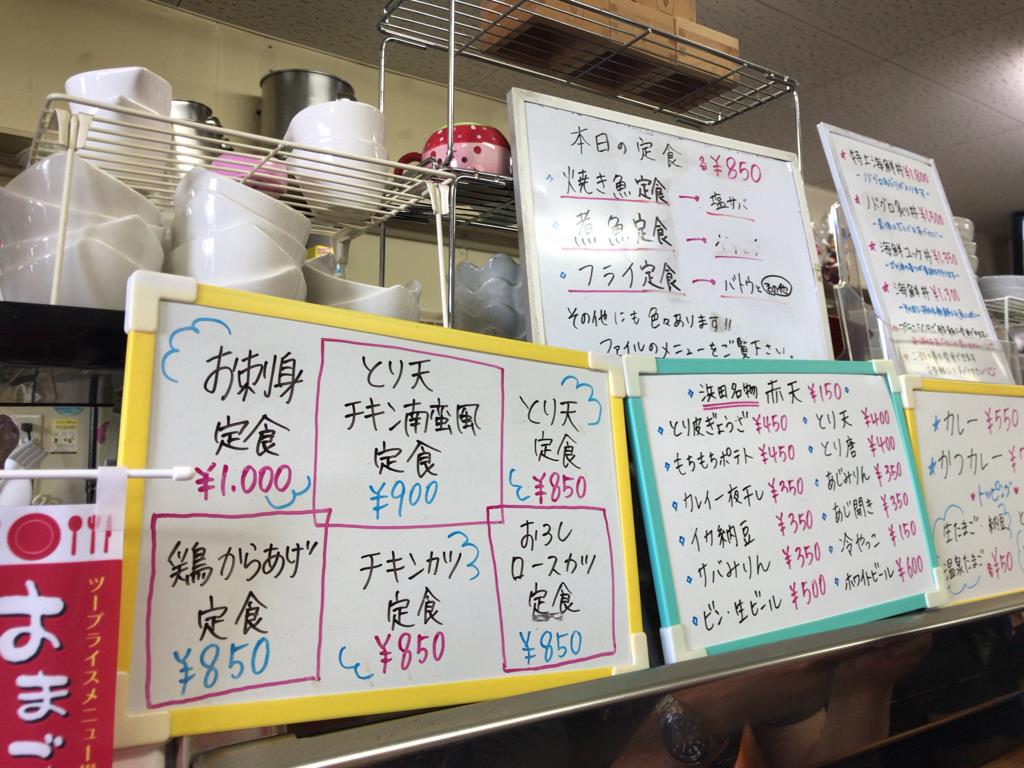 お刺身
定食
¥1.000
とり天
チキン南蛮風
定食
¥900
とり天
定食
¥850
鶏からあげ
定食
¥850
チキンカツ
定食
¥850
おろし
ロースカツ
定食
¥850
本日の定食 各¥850
焼き魚定食 → 塩サバ
煮魚定食 →
フライ定食 → バトウと
その他にも色々あります!!
ファイルのメニューをご覧下さい。
浜田名物 赤天 ¥150
とり皮ぎょうざ ¥450
もちもちポテト ¥450
カレイ一夜干し ¥350
イカ納豆 ¥350
サバみりん ¥350
ビン・生ビール ¥500
とり天 ¥400
とり唐 ¥400
あじみりん ¥350
あじ開き ¥350
冷やっこ ¥150
ホワイトビール ¥600
特上海鮮丼 ¥1,800
海鮮ユッケ丼
海鮮丼 ¥1,300
カレー ¥550
かつカレー
トッピング
生たまご 納豆
温泉たまご ¥50
ツープライスメニュー
はまご